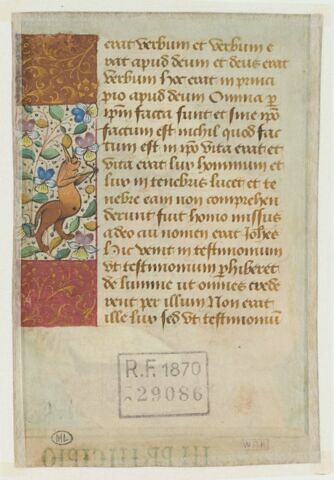 erat verbum et verbum e
rat apud deum et deus erat
verbum hoc erat in princi
pio apud deum Omnia p̄
ip̄m facta sunt et sine ip̄o
factum est nichil quod fac
tum est in ip̄o vita erat et
vita erat lux hominum et
lux in tenebris lucet et te
nebre eam non comprehen
derunt fuit homo missus
a deo cui nomen erat Joh̄es
Hic venit in testimonium
vt testimonium p̄hiberet
de lumine ut omnes crede
rent per illum Non erat
ille lux sed vt testimoniū
R.F. 1870
29086
ML